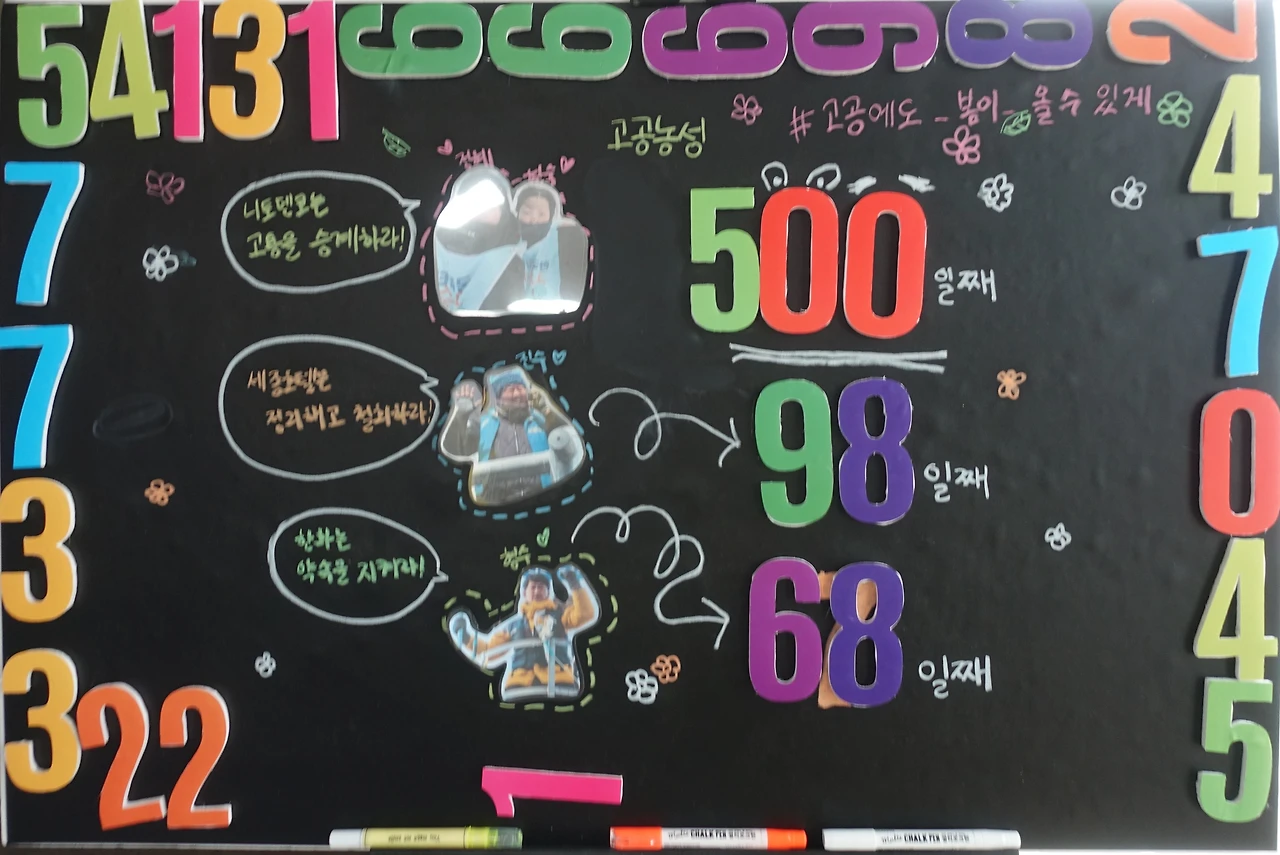 54131
8
2
#고공에도_봄이_올수 있게
고공농성
정혜
현숙
니토덴코는
고용을 승계하라!
500 일째
진수
세종호텔은
정리해고 철회하라!
98 일째
형수
한화는
약속을 지켜라!
68 일째
7
7
3
3
22
4
7
0
4
5
1